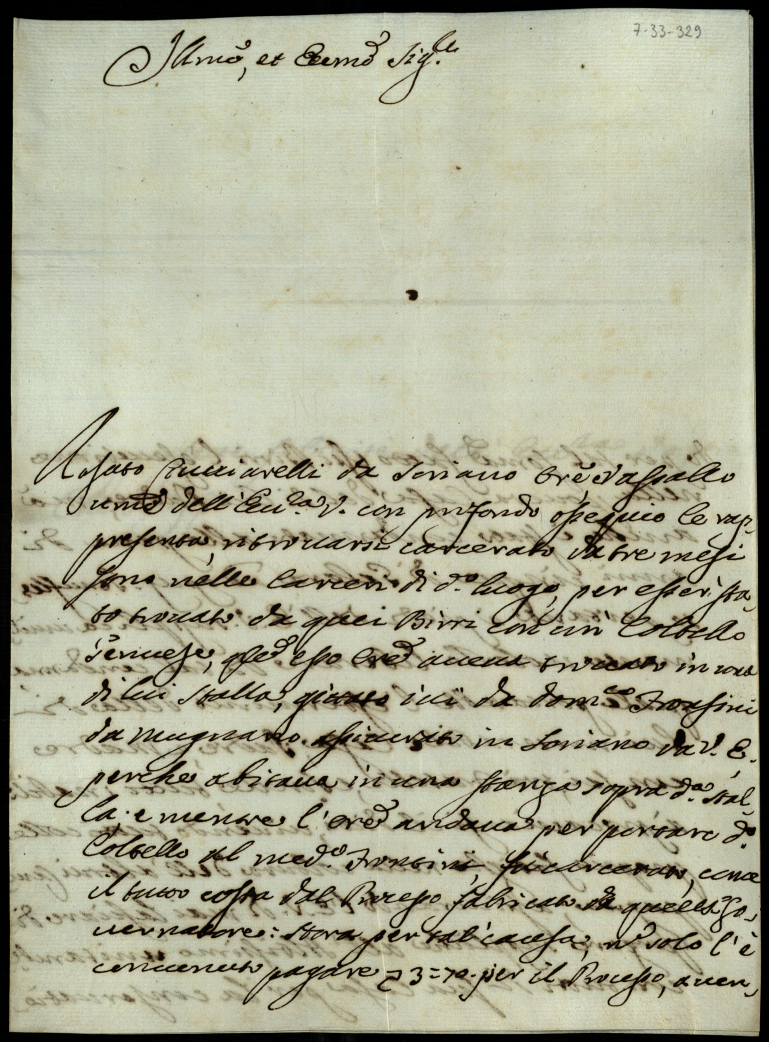 7-33-329
Illmo, et Eccmo Sig.re
Rosato Cucciarelli da Soriano Ore Vassallo
umo dell'Ecc.za V. con profondo ossequio le rap-
presenta, ritrovarsi carcerato da tre mesi
sono nelle Carceri di d.o luogo, per esser sta-
to trovato da quei Birri con un Coltello
Genuese, qle esso Ore aveva trovato in una
di lui stalla, gittato ivi da Dom.co Fronsini
da Mugnano in Soriano da V. E.
perche abitava in una stanza sopra d.a stal-
la: e mentre l'Ore andava per portare d.o
Coltello al med.o Frontini, fu carcerato, come
il tutto costa dal Processo fabricato da quell Go-
vernatore: Stora per tal causa, n solo l'è
convenuto pagare 3=70. per il Processo, aven-